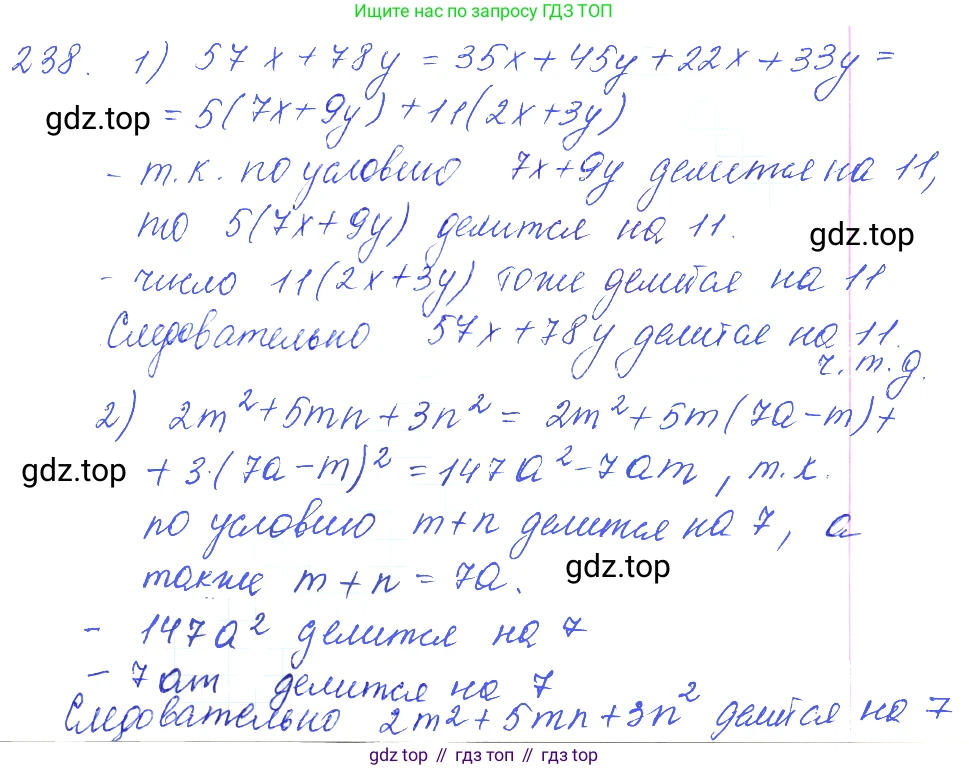 Ищите нас по запросу ГДЗ ТОП
238. 1) 57x + 78y = 35x + 45y + 22x + 33y =
gdz.top = 5(7x + 9y) + 11(2x + 3y)
- т.к. по условию 7x + 9y делится на 11,
то 5(7x + 9y) делится на 11.
gdz.top
- число 11(2x + 3y) тоже делится на 11
Следовательно 57x + 78y делится на 11.
ч.т.д.
2) 2m² + 5mn + 3n² = 2m² + 5m(7a - m) +
gdz.top + 3·(7a - m)² = 147a² - 7am, т.к.
по условию m + n делится на 7, а
также m + n = 7a.
gdz.top
- 147a² делится на 7
- 7am делится на 7
Следовательно 2m² + 5mn + 3n² делится на 7
gdz.top // гдз топ // gdz top